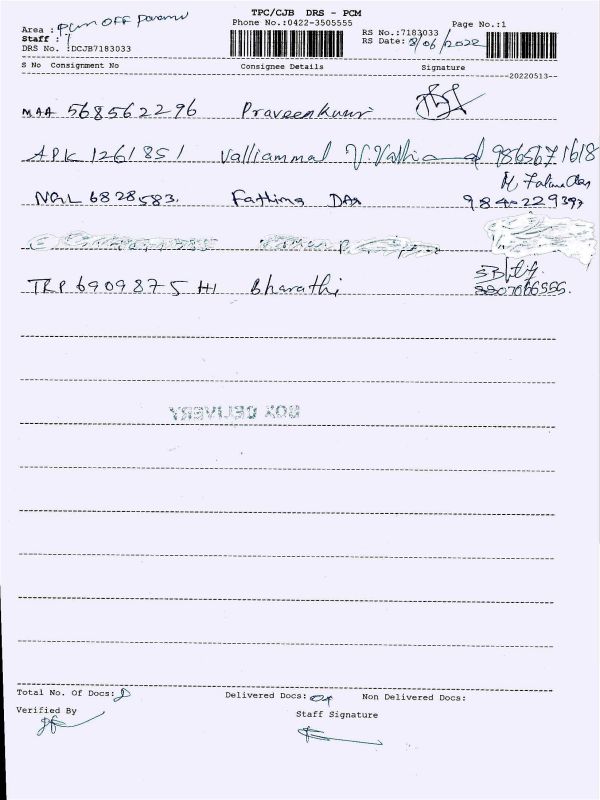 TPC/CJB DRS - PCM
Phone No.:0422-3505555
Page No.:1
Area : Pcm OFF
Staff :
DRS No. :DCJB7183033
RS No.:7183033
RS Date: 8/06/2022
S No Consignment No Consignee Details Signature
20220513
MAA 568562296 Praveenkumr
APK 1261851 Valliammal 9865671618
NGL 6828583. Fathima
TRP 6909875 Bharathi
BOX DELIVERY
Total No. Of Docs: Delivered Docs: 04 Non Delivered Docs:
Verified By
Staff Signature